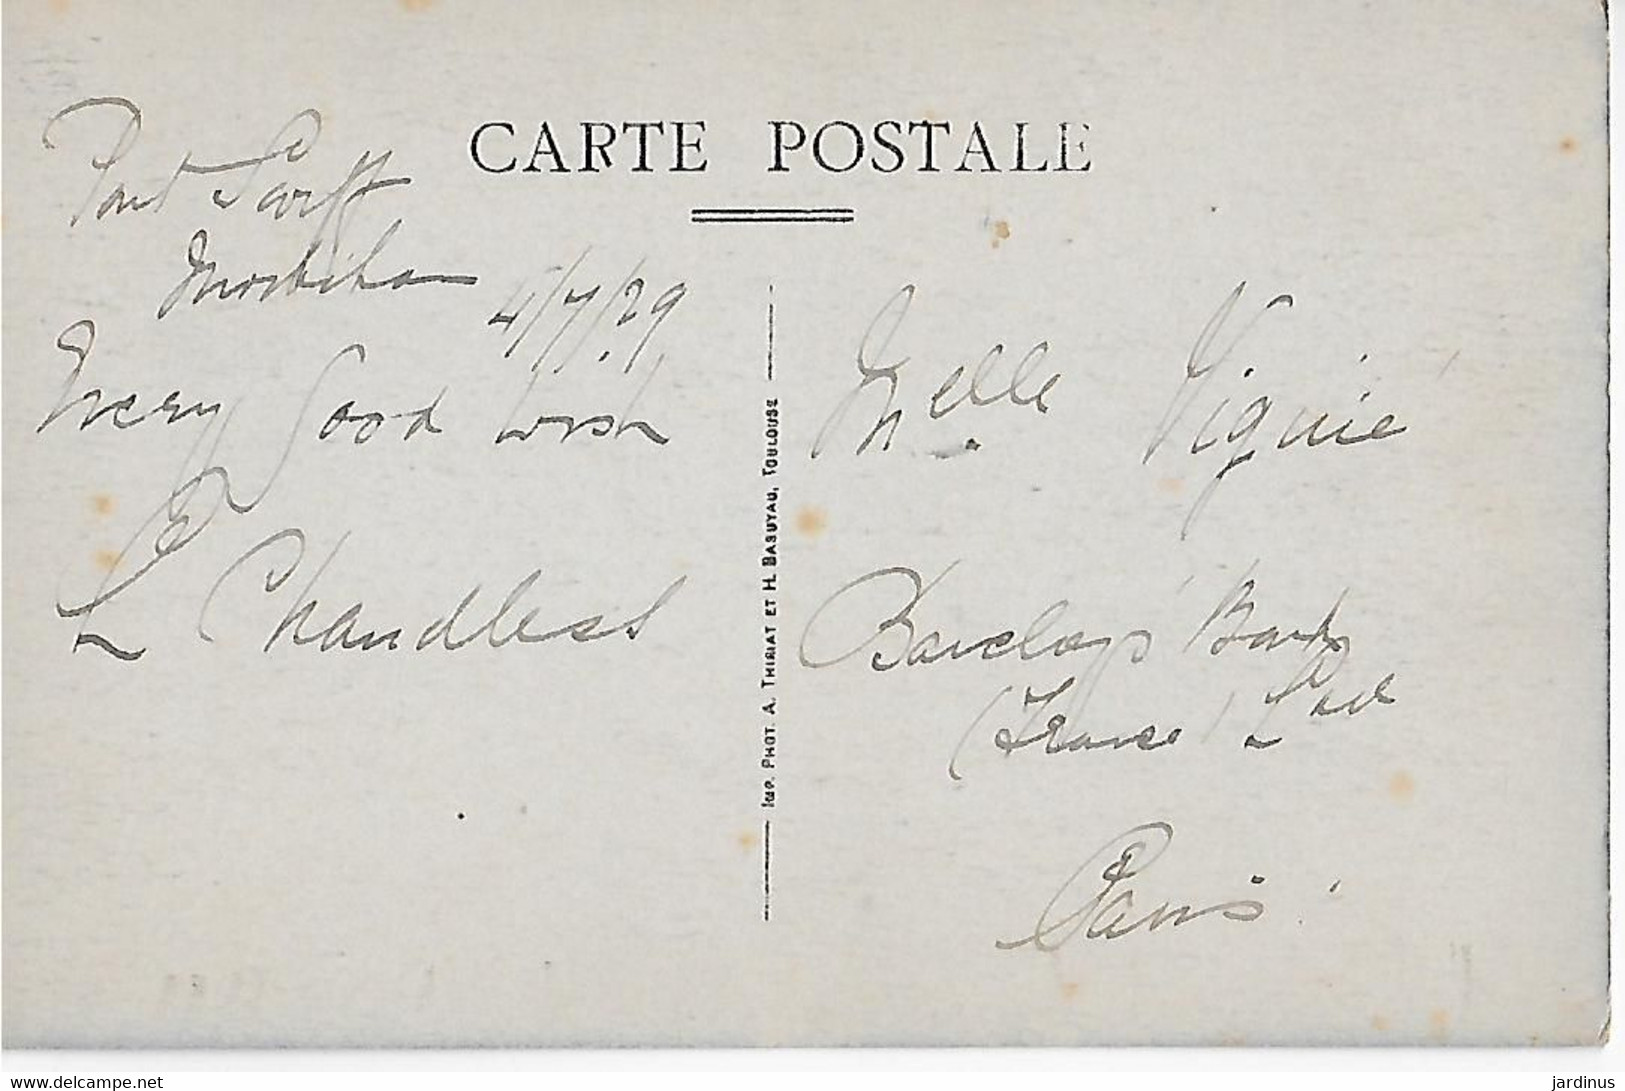 CARTE POSTALE
Pont Scorff
Morbihan
4/7/29
Every Good wish
L E Chandless
Imp. Phot. A. Thiriat et H. Basuyau, Toulouse
Melle Viguié
Barclays Bank
(France) Ltd
Paris
delcampe.net
jardinus